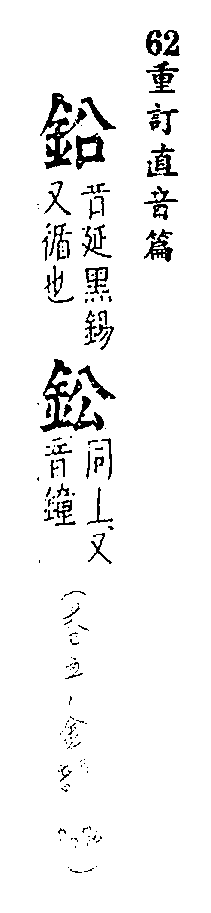 62重訂直音篇
鉛音延黑錫
又循也
鈆同上又
音鐘
(卷五、金部